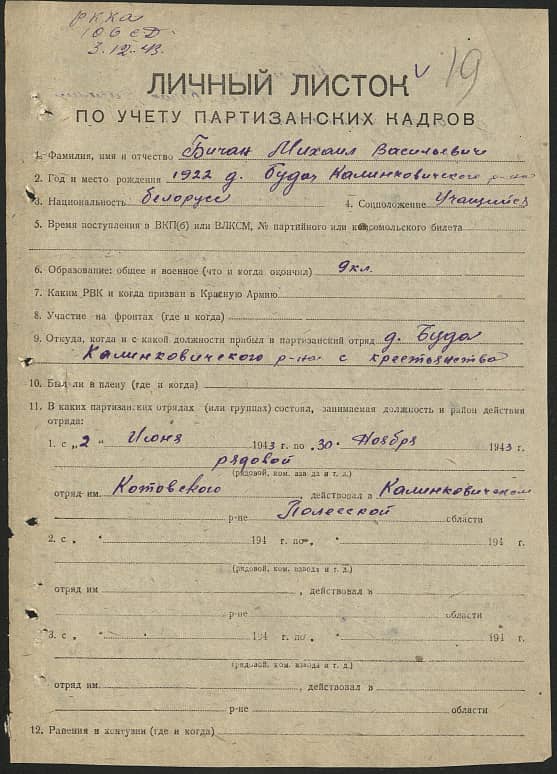 РККА
106 сд
3.12.43.
√ 19
ЛИЧНЫЙ ЛИСТОК
ПО УЧЕТУ ПАРТИЗАНСКИХ КАДРОВ
1. Фамилия, имя и отчество Бичан Михаил Васильевич
2. Год и место рождения 1922 д. Буда Калинковичского р-на
3. Национальность белорусс 4. Соцположение Учащийся
5. Время поступления в ВКП(б) или ВЛКСМ, № партийного или комсомольского билета
6. Образование: общее и военное (что и когда окончил) 9кл.
7. Каким РВК и когда призван в Красную Армию
8. Участие на фронтах (где и когда)
9. Откуда, когда и с какой должности прибыл в партизанский отряд д. Буда
Калинковичского р-на с крестьянства
10. Был ли в плену (где и когда)
11. В каких партизанских отрядах (или группах) состоял, занимаемая должность и район действия
отряда:
1. с „2 “ Июня 1943 г. по „30“ Ноября 1943 г.
рядовой
(рядовой, ком. взвода и т. д.)
отряд им. Котовского, действовал в Калинковичском
р-не Полесской области
2. с „ “ 194 г. по „ “ 194 г.
(рядовой, ком. взвода и т. д.)
отряд им , действовал в
р-не области
3. с „ “ 194 г. по „ “ 194 г.
(рядовой, ком. взвода и т. д.)
отряд им. , действовал в
р-не области
12. Ранения и контузии (где и когда)